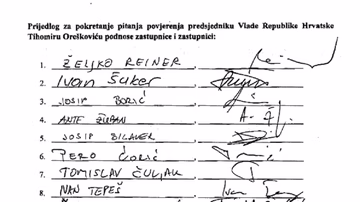 Prijedlog za pokretanje pitanja povjerenja predsjedniku Vlade Republike Hrvatske
Tihomiru Oreškoviću podnose zastupnice i zastupnici:
1. ŽELJKO REINER
2. Ivan Šuker
3. JOSIP BORIĆ
4. ANTE ŽUPAN
5. JOSIP BILAVER
6. PERO ĆORIĆ
7. TOMISLAV ČULJAK
8. IVAN TEPEŠ